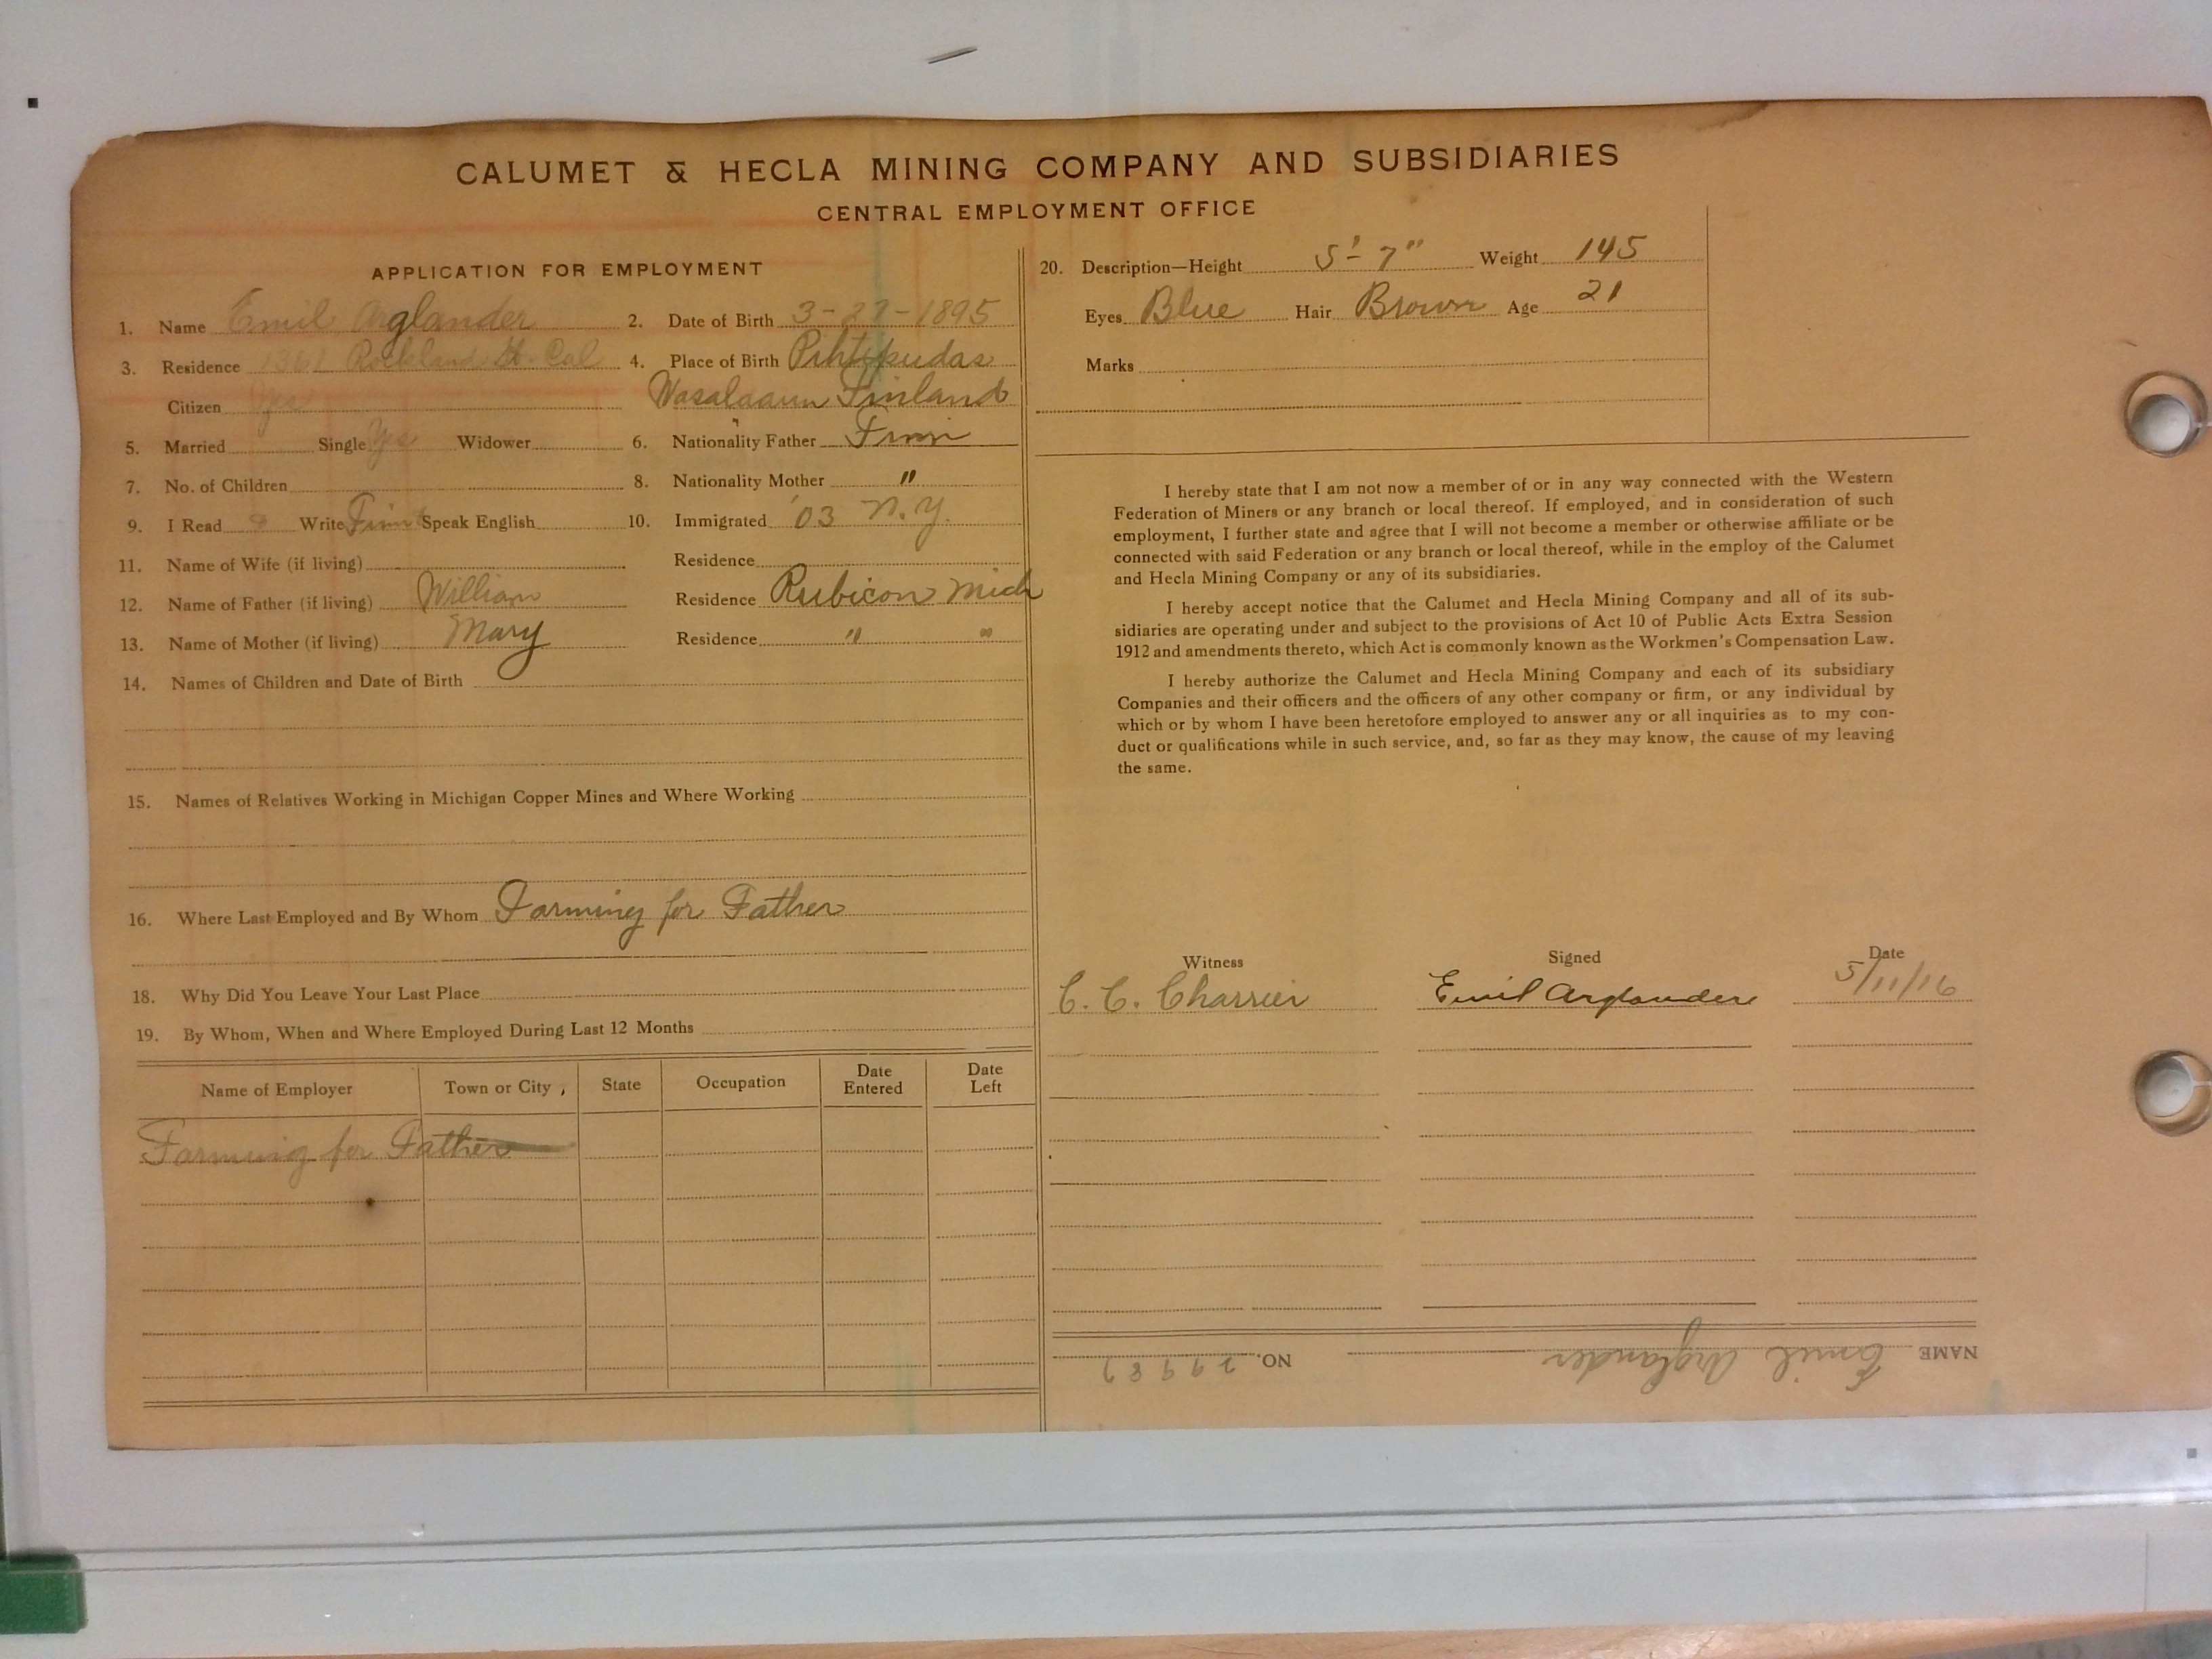 CALUMET & HECLA MINING COMPANY AND SUBSIDIARIES
CENTRAL EMPLOYMENT OFFICE
APPLICATION FOR EMPLOYMENT
1. Name Emil Arglander 2. Date of Birth 3-27-1895
3. Residence 1361 Rockland St. Cal 4. Place of Birth Pihtipudas
Citizen Yes Wasalaaun Finland
5. Married Single Yes Widower 6. Nationality Father Finn
7. No. of Children 8. Nationality Mother "
9. I Read & Write Finn & Speak English 10. Immigrated '03 N.Y.
11. Name of Wife (if living) Residence
12. Name of Father (if living) William Residence Rubicon Mich
13. Name of Mother (if living) Mary Residence " "
14. Names of Children and Date of Birth
15. Names of Relatives Working in Michigan Copper Mines and Where Working
16. Where Last Employed and By Whom Farming for Father
18. Why Did You Leave Your Last Place
19. By Whom, When and Where Employed During Last 12 Months
Name of Employer Town or City, State Occupation Date Entered Date Left
Farming for Father
20. Description—Height 5'-7" Weight 145
Eyes Blue Hair Brown Age 21
Marks
I hereby state that I am not now a member of or in any way connected with the Western
Federation of Miners or any branch or local thereof. If employed, and in consideration of such
employment, I further state and agree that I will not become a member or otherwise affiliate or be
connected with said Federation or any branch or local thereof, while in the employ of the Calumet
and Hecla Mining Company or any of its subsidiaries.
I hereby accept notice that the Calumet and Hecla Mining Company and all of its sub-
sidiaries are operating under and subject to the provisions of Act 10 of Public Acts Extra Session
1912 and amendments thereto, which Act is commonly known as the Workmen's Compensation Law.
I hereby authorize the Calumet and Hecla Mining Company and each of its subsidiary
Companies and their officers and the officers of any other company or firm, or any individual by
which or by whom I have been heretofore employed to answer any or all inquiries as to my con-
duct or qualifications while in such service, and, so far as they may know, the cause of my leaving
the same.
Witness Signed Date
C. C. Charrier Emil Arglander 5/11/16
NAME Emil Arglander NO.